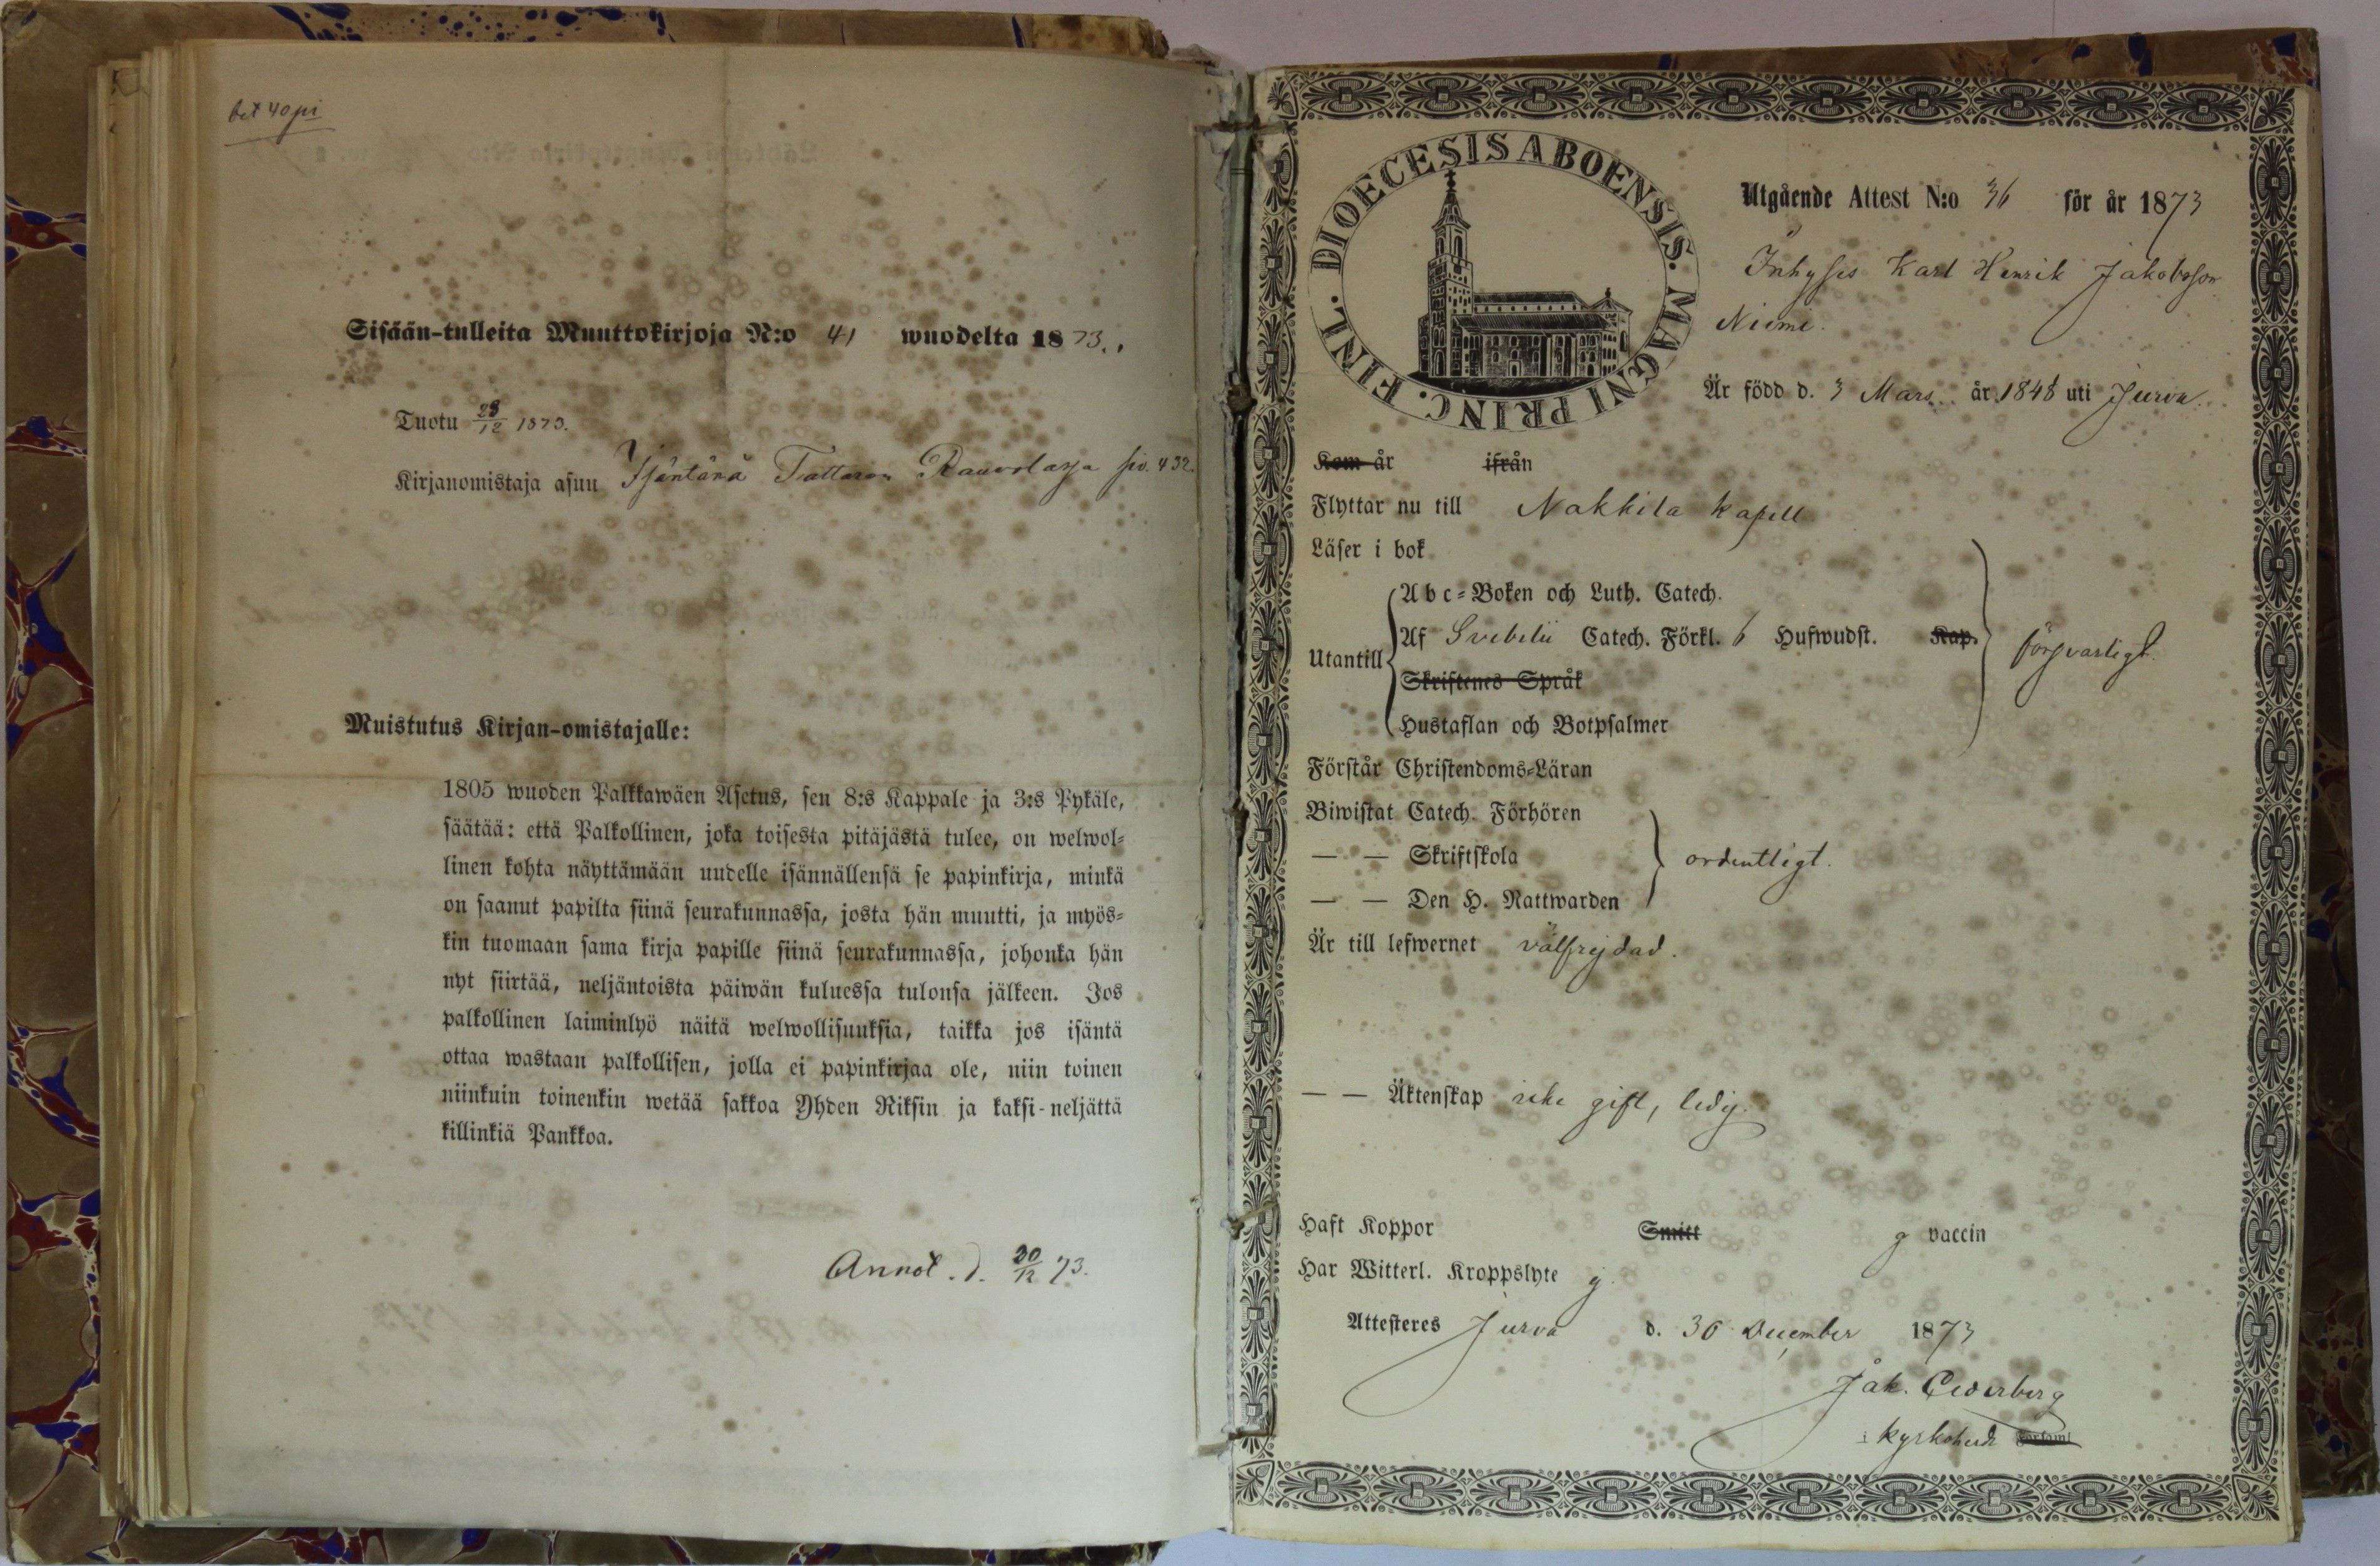 bet 40 pi
Sisään-tulleita Muuttokirjoja N:o 41 wuodelta 1873.
Tuotu 28/12 1873.
Kirjanomistaja asuu Isäntänä Tattaran Rauvolassa siv. 432.
Muistutus Kirjan-omistajalle:
1805 wuoden Palkkawäen Asetus, sen 8:s Kappale ja 3:s Pykäle,
säätää: että Palkollinen, joka toisesta pitäjästä tulee, on welwol-
linen kohta näyttämään uudelle isännällensä se papinkirja, minkä
on saanut papilta siinä seurakunnassa, josta hän muutti, ja myös-
kin tuomaan sama kirja papille siinä seurakunnassa, johonka hän
nyt siirtää, neljäntoista päiwän kuluessa tulonsa jälkeen. Jos
palkollinen laiminlyö näitä welwollisuuksia, taikka jos isäntä
ottaa wastaan palkollisen, jolla ei papinkirjaa ole, niin toinen
niinkuin toinenkin wetää sakkoa Yhden Riksin ja kaksi-neljättä
killinkiä Pankkoa.
Annot. d. 20/12 73.
DIOECESIS ABOENSIS. MAGNI PRINC. FINL.
Utgående Attest N:o 36 för år 1873
Inhyses Karl Henrik Jakobsson
Niemi.
Är född d. 3 Mars. år 1848 uti Jurva.
Kom år ifrån
Flyttar nu till Nakkila kapell
Läser i bok
Abc-Boken och Luth. Catech.
Af Svebelii Catech. Förkl. 6 Hufwudst. Kap.
Utantill försvarligt.
Skriftenes Språk
Hustaflan och Botpsalmer
Förstår Christendoms-Läran
Biwistat Catech. Förhören
— — Skriftskola ordentligt.
— — Den H. Nattwarden
Är till lefwernet välfrejdad.
— — Äktenskap icke gift, ledig.
Haft Koppor Smitt g vaccin
Har Witterl. Kroppslyte ej.
Attesteres Jurva d. 30 December 1873
Jak. Cederberg
kyrkoherde Församl